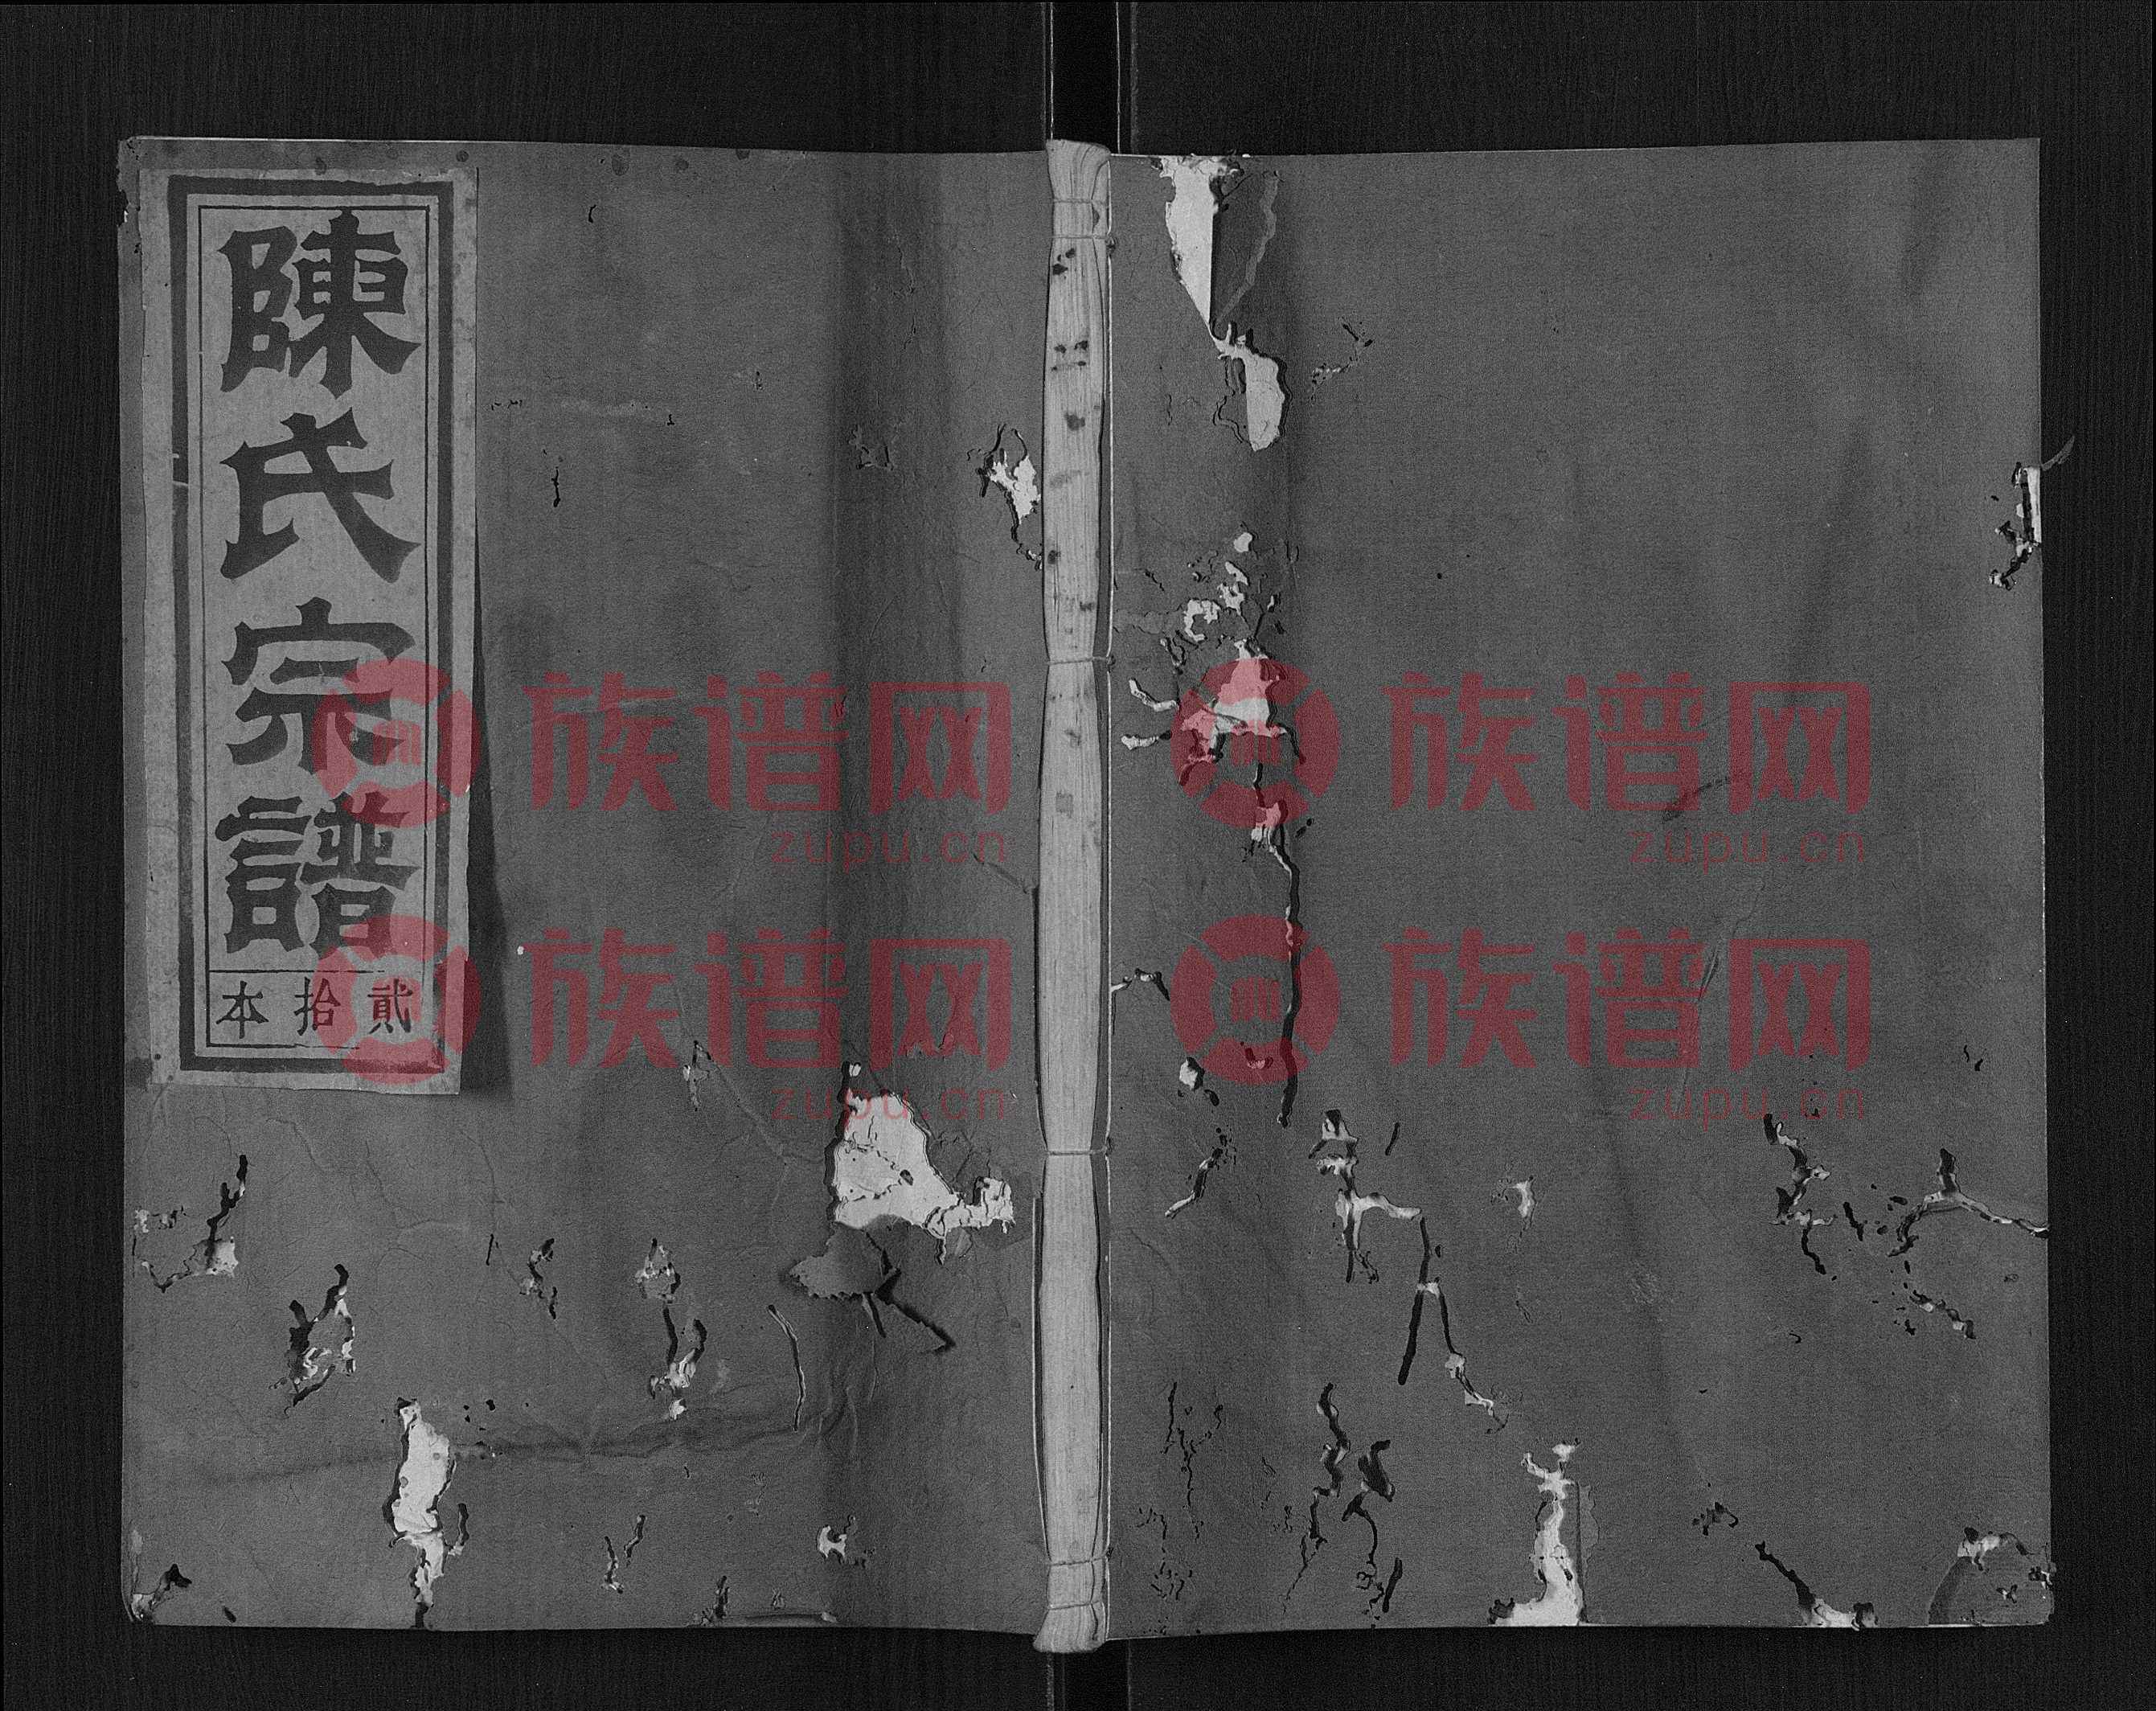 陳氏宗譜
貳拾本
族谱网
zupu.cn
族谱网
zupu.cn
族谱网
zupu.cn
族谱网
zupu.cn